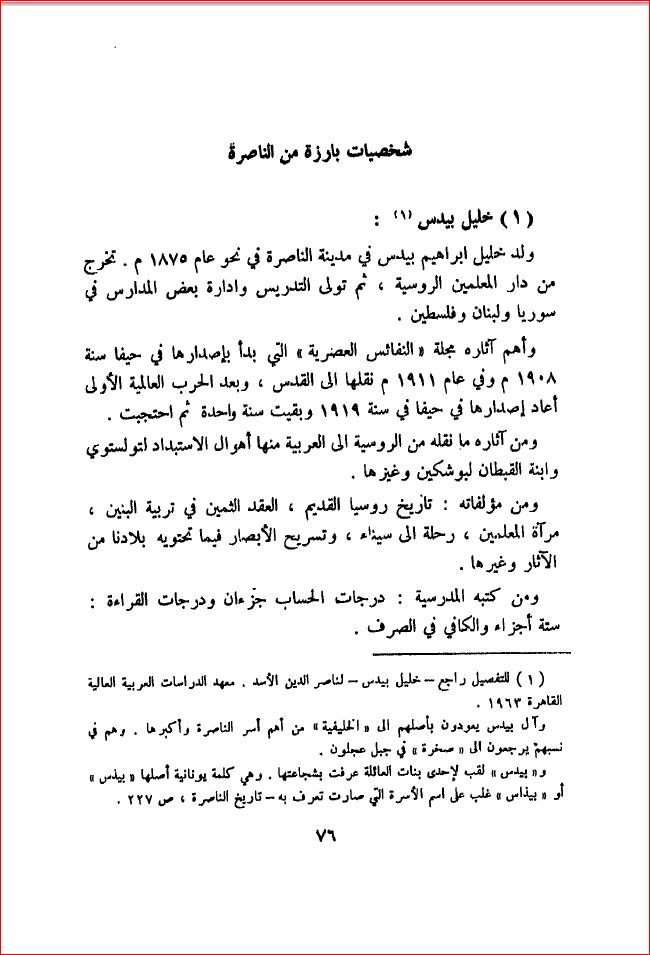 شخصيات بارزة من الناصرة
(١) خليل بيدس (١) :
ولد خليل ابراهيم بيدس في مدينة الناصرة في نحو عام ١٨٧٥ م . تخرج
من دار المعلمين الروسية ، ثم تولى التدريس وادارة بعض المدارس في
سوريا ولبنان وفلسطين .
وأهم آثاره مجلة « النفائس العصرية » التي بدأ بإصدارها في حيفا سنة
١٩٠٨ م وفي عام ١٩١١ م نقلها الى القدس ، وبعد الحرب العالمية الأولى
أعاد إصدارها في حيفا في سنة ١٩١٩ وبقيت سنة واحدة ثم احتجبت .
ومن آثاره ما نقله من الروسية الى العربية منها أهوال الاستبداد لتولستوي
وابنة القبطان لبوشكين وغيرها .
ومن مؤلفاته : تاريخ روسيا القديم ، العقد الثمين في تربية البنين ،
مرآة المعلمين ، رحلة الى سيناء ، وتسريح الأبصار فيما تحتويه بلادنا من
الآثار وغيرها .
ومن كتبه المدرسية : درجات الحساب جزءان ودرجات القراءة :
ستة أجزاء والكافي في الصرف .
(١) للتفصيل راجع – خليل بيدس – لناصر الدين الأسد . معهد الدراسات العربية العالية
القاهرة ١٩٦٣ .
وآل بيدس يعودون بأصلهم الى « الخليفية » من أهم أسر الناصرة وأكبرها . وهم في
نسبهم يرجعون الى « صخرة » في جبل عجلون .
و« بيدس » لقب لإحدى بنات العائلة عرفت بشجاعتها . وهي كلمة يونانية أصلها « بيذس »
أو « بيذاس » غلب على اسم الأسرة التي صارت تعرف به – تاريخ الناصرة ، ص ٢٢٧ .
٧٦